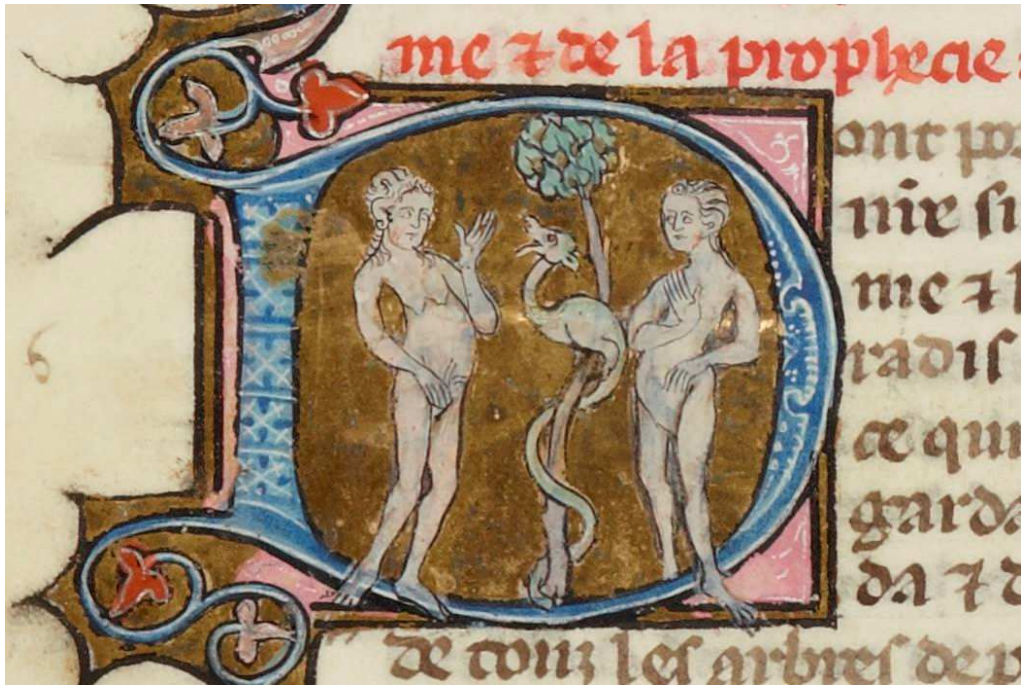 me ⁊ de la prophecie
Dont por
nie si
me ⁊ l
radis
ce qui
garda
da ⁊ d
de touz les arbres de p